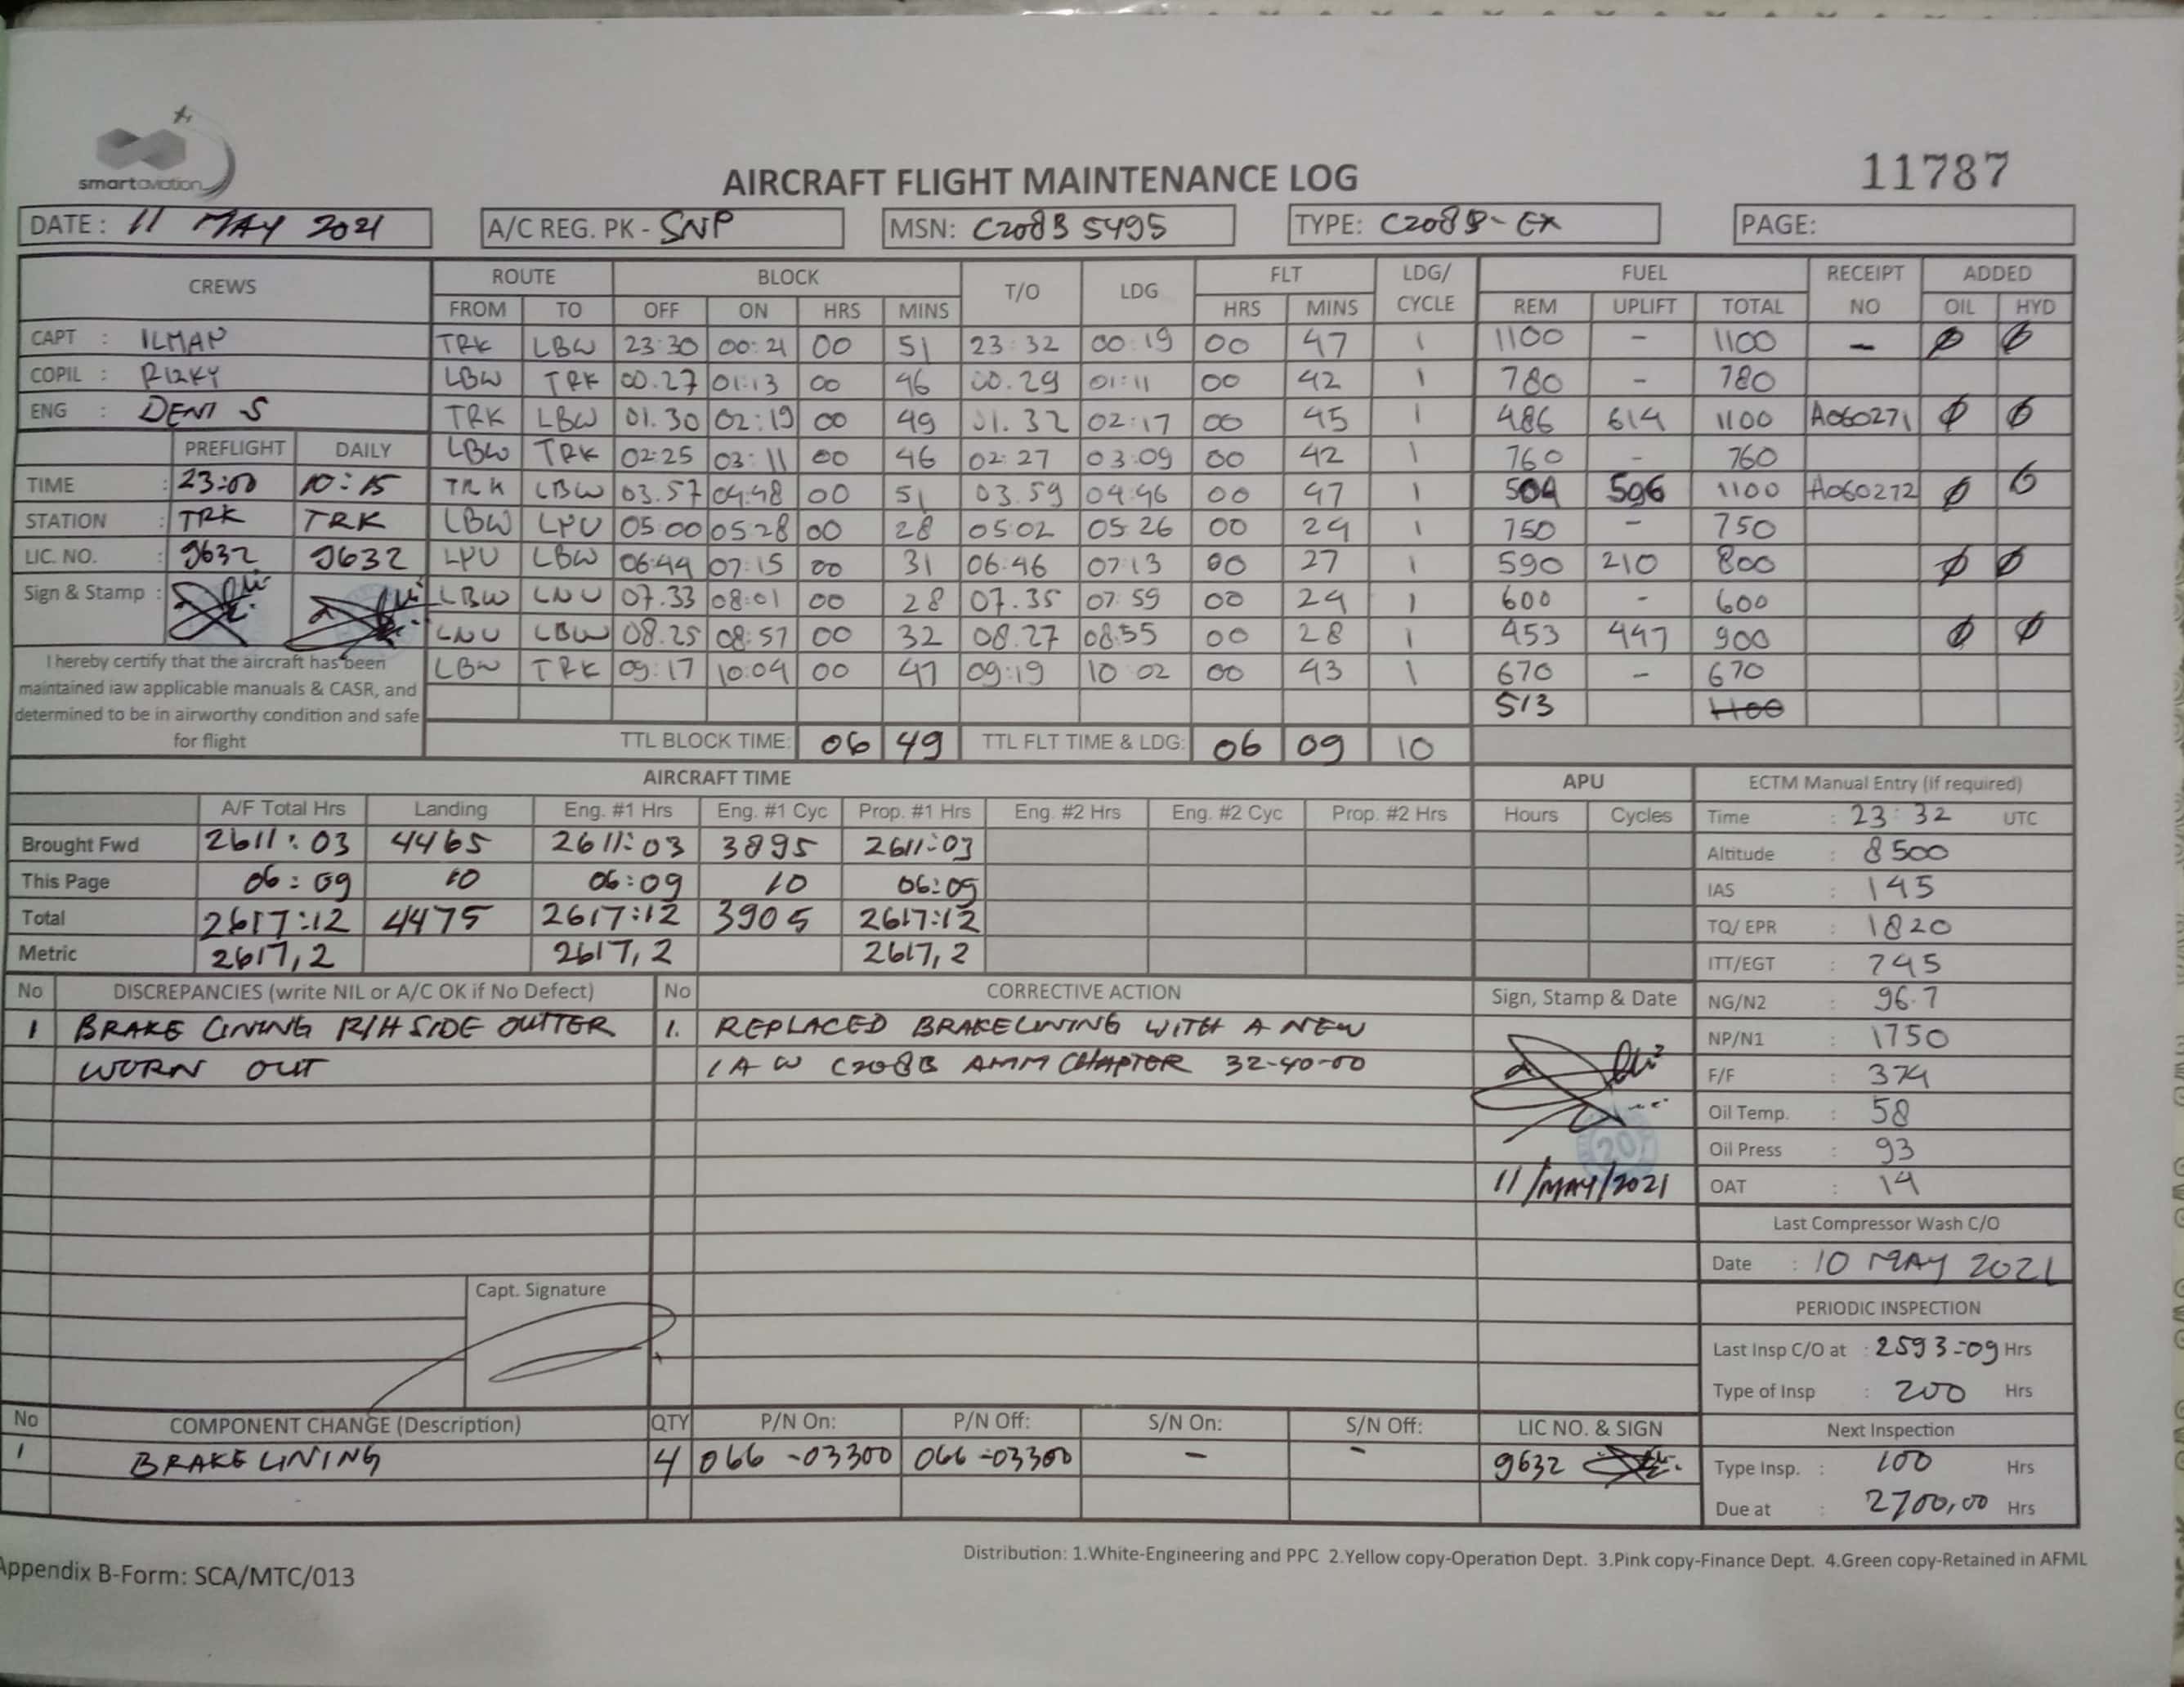 smartaviation
AIRCRAFT FLIGHT MAINTENANCE LOG
11787
DATE : 11 MAY 2021 A/C REG. PK - SNP MSN: C208B 5495 TYPE: C208B-EX PAGE:
CREWS ROUTE BLOCK T/O LDG FLT LDG/ FUEL RECEIPT ADDED
FROM TO OFF ON HRS MINS HRS MINS CYCLE REM UPLIFT TOTAL NO OIL HYD
CAPT : ILMAN TRK LBW 23:30 00:21 00 51 23:32 00:19 00 47 1 1100 - 1100 - Ø Ø
COPIL : RIZKY LBW TRK 00.27 01:13 00 46 00.29 01:11 00 42 1 780 - 780
ENG : DENI S TRK LBW 01.30 02:19 00 49 01.32 02:17 00 45 1 486 614 1100 A060271 Ø Ø
PREFLIGHT DAILY LBW TRK 02:25 03:11 00 46 02:27 03:09 00 42 1 760 - 760
TIME : 23:00 10:15 TRK LBW 03.57 04:48 00 51 03.59 04:46 00 47 1 504 596 1100 A060272 Ø Ø
STATION : TRK TRK LBW LPU 05:00 05:28 00 28 05:02 05:26 00 24 1 750 - 750
LIC. NO. : 9632 9632 LPU LBW 06:44 07:15 00 31 06:46 07:13 00 27 1 590 210 800 Ø Ø
Sign & Stamp : LBW LNU 07.33 08:01 00 28 07.35 07:59 00 24 1 600 - 600
LNU LBW 08.25 08:57 00 32 08.27 08:55 00 28 1 453 447 900 Ø Ø
I hereby certify that the aircraft has been LBW TRK 09:17 10:04 00 47 09:19 10:02 00 43 1 670 - 670
maintained iaw applicable manuals & CASR, and
determined to be in airworthy condition and safe 513 1100
for flight TTL BLOCK TIME: 06 49 TTL FLT TIME & LDG: 06 09 10
AIRCRAFT TIME APU ECTM Manual Entry (if required)
A/F Total Hrs Landing Eng. #1 Hrs Eng. #1 Cyc Prop. #1 Hrs Eng. #2 Hrs Eng. #2 Cyc Prop. #2 Hrs Hours Cycles Time : 23:32 UTC
Brought Fwd 2611:03 4465 2611:03 3895 2611:03 Altitude : 8500
This Page 06:09 10 06:09 10 06:09 IAS : 145
Total 2617:12 4475 2617:12 3905 2617:12 TQ/ EPR : 1820
Metric 2617,2 2617,2 2617,2 ITT/EGT : 745
No DISCREPANCIES (write NIL or A/C OK if No Defect) No CORRECTIVE ACTION Sign, Stamp & Date NG/N2 : 96.7
1 BRAKE LINING R/H SIDE OUTTER 1. REPLACED BRAKELINING WITH A NEW NP/N1 : 1750
WORN OUT IAW C208B AMM CHAPTER 32-40-00 F/F : 374
Oil Temp. : 58
Oil Press : 93
11/MAY/2021 OAT : 14
Last Compressor Wash C/O
Date : 10 MAY 2021
Capt. Signature
PERIODIC INSPECTION
Last Insp C/O at : 2593:09 Hrs
Type of Insp : 200 Hrs
No COMPONENT CHANGE (Description) QTY P/N On: P/N Off: S/N On: S/N Off: LIC NO. & SIGN Next Inspection
1 BRAKE LINING 4 066-03300 066-03300 - - 9632 Type Insp. : 100 Hrs
Due at : 2700,00 Hrs
Distribution: 1.White-Engineering and PPC 2.Yellow copy-Operation Dept. 3.Pink copy-Finance Dept. 4.Green copy-Retained in AFML
Appendix B-Form: SCA/MTC/013